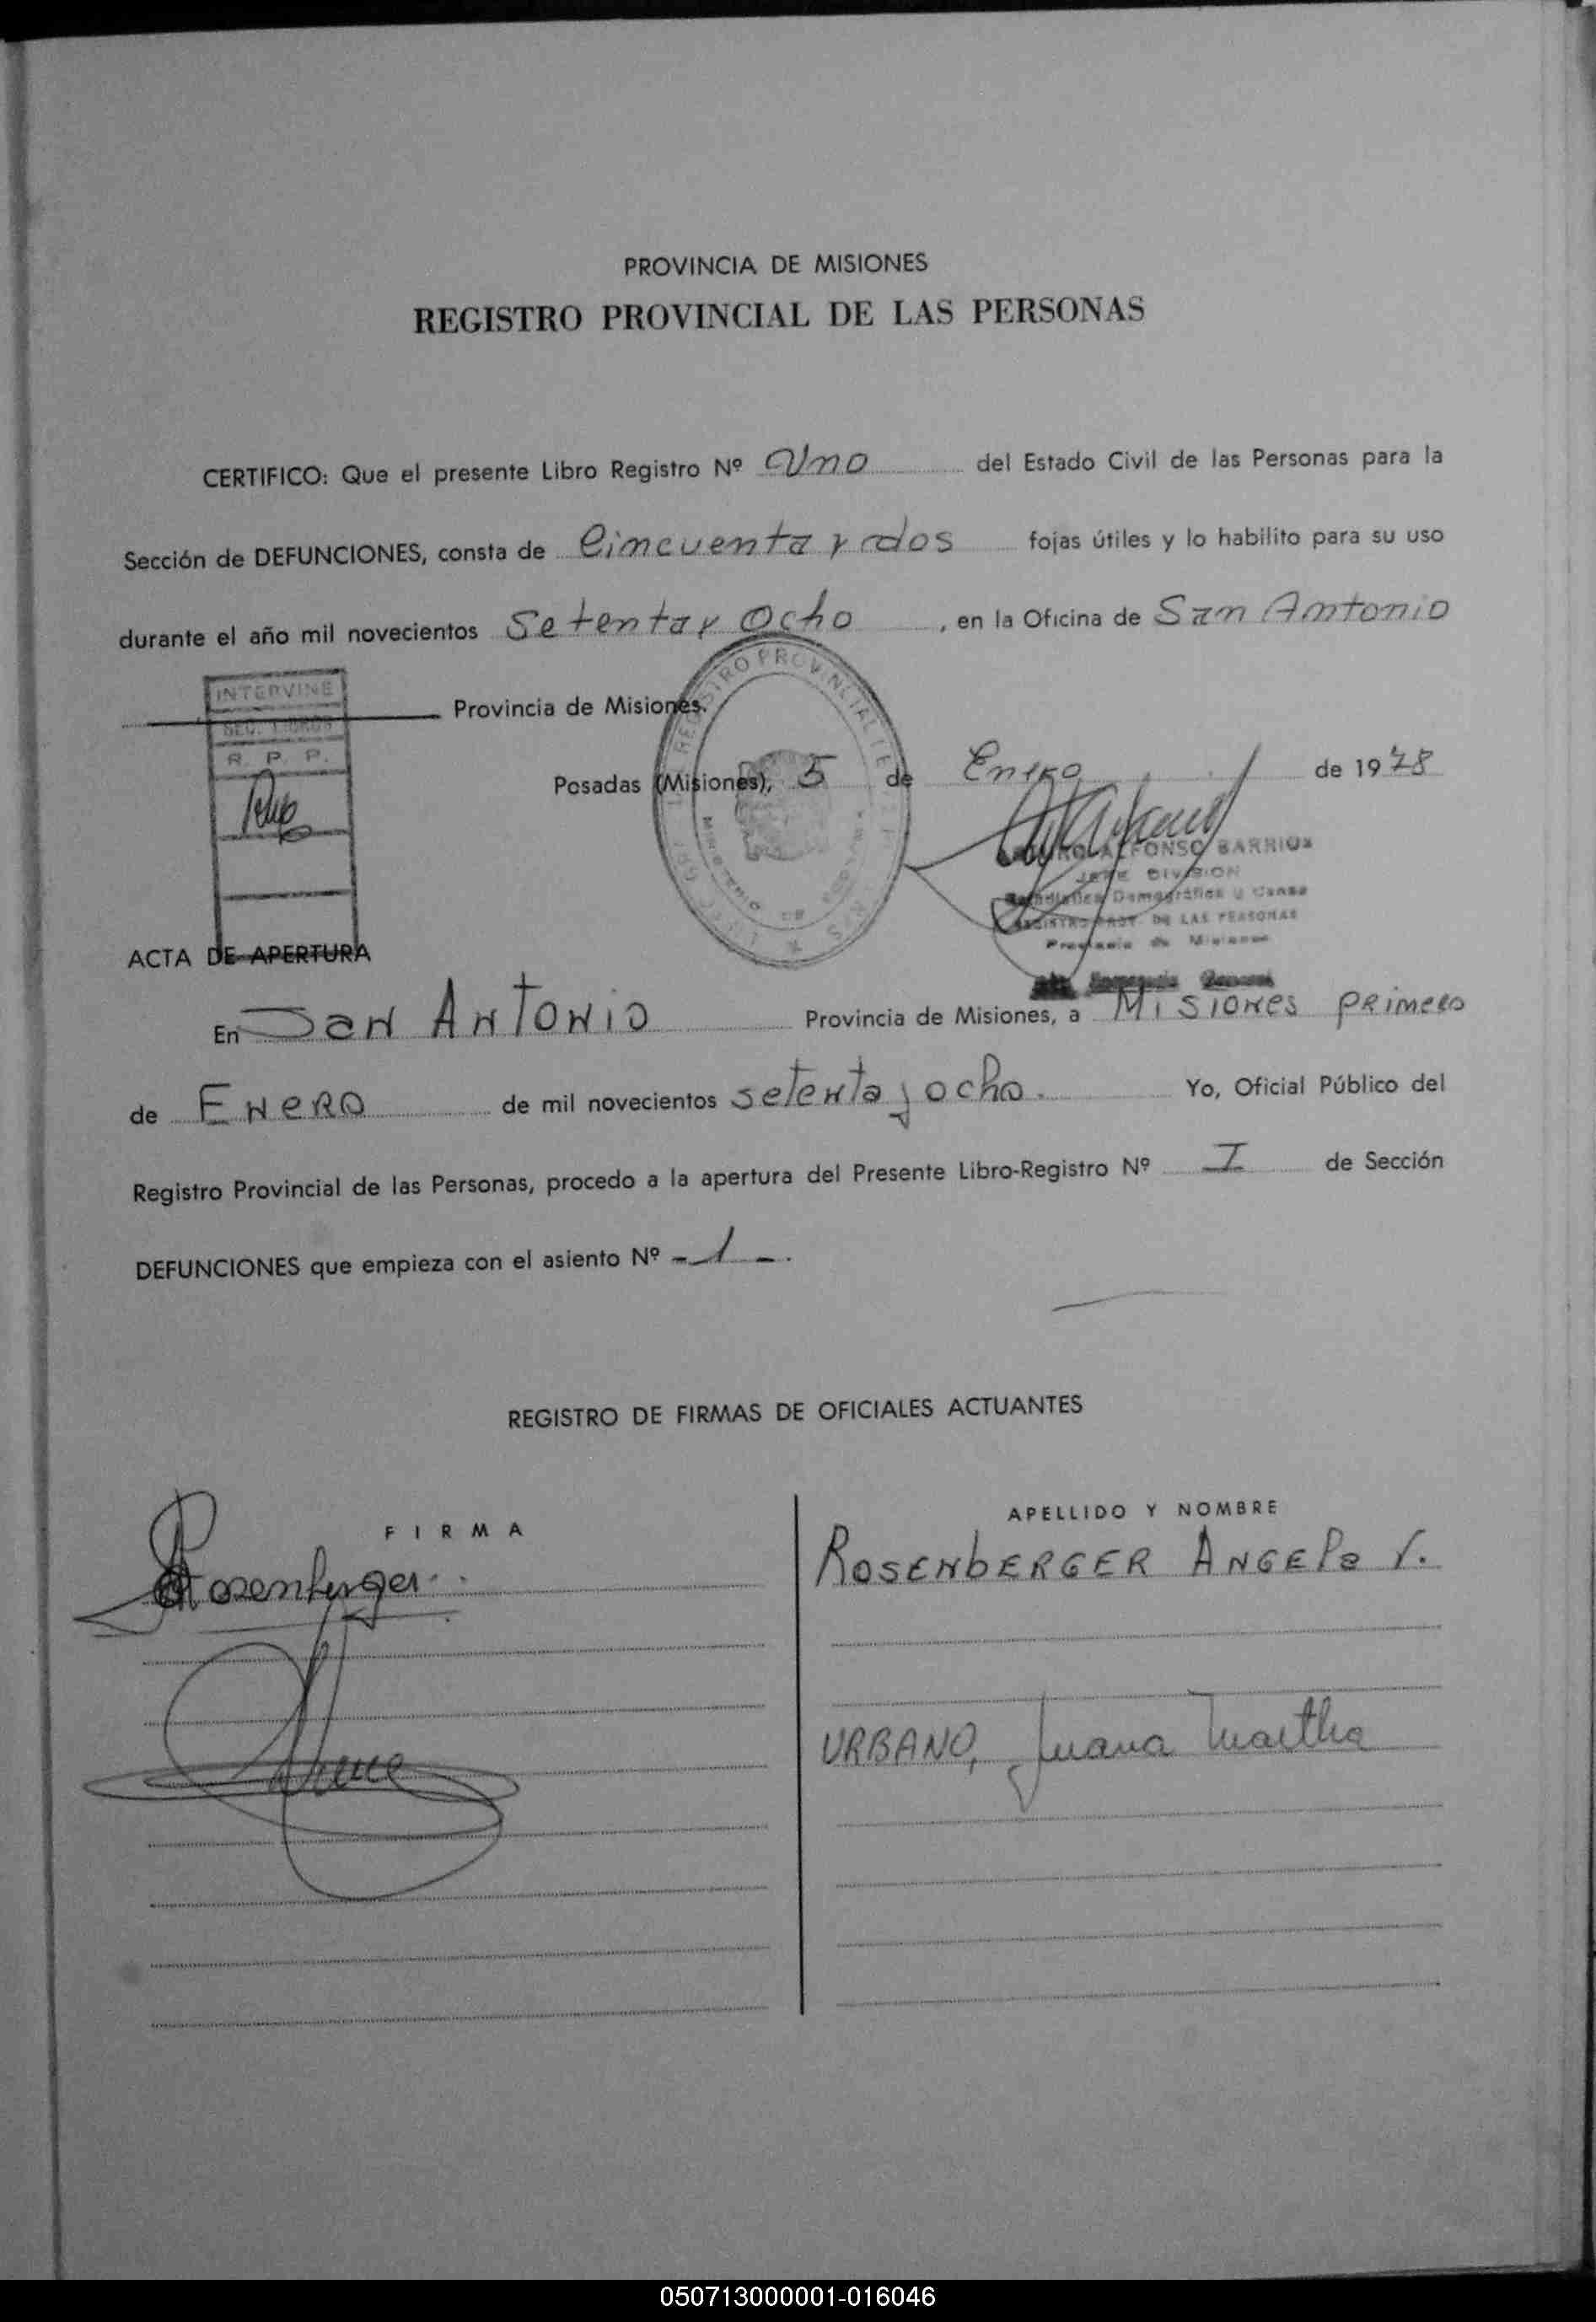 PROVINCIA DE MISIONES
REGISTRO PROVINCIAL DE LAS PERSONAS
CERTIFICO: Que el presente Libro Registro Nº Uno del Estado Civil de las Personas para la
Sección de DEFUNCIONES, consta de Cincuenta y dos fojas útiles y lo habilito para su uso
durante el año mil novecientos Setenta y Ocho, en la Oficina de San Antonio
INTERVINE
SEC. LIBROS
R. P. P.
Provincia de Misiones.
Posadas (Misiones), 5 de Enero de 1978
ALFONSO BARRIOS
JEFE DIVISION
Demográfica y Censo
DE LAS PERSONAS
Provincia de Misiones
ACTA DE APERTURA
En San Antonio Provincia de Misiones, a Misiones primero
de Enero de mil novecientos setenta y ocho. Yo, Oficial Público del
Registro Provincial de las Personas, procedo a la apertura del Presente Libro-Registro Nº I de Sección
DEFUNCIONES que empieza con el asiento Nº - 1 -.
REGISTRO DE FIRMAS DE OFICIALES ACTUANTES
FIRMA
APELLIDO Y NOMBRE
Rosenberger
ROSENBERGER ANGELA V.
URBANO, Juana Martha
050713000001-016046